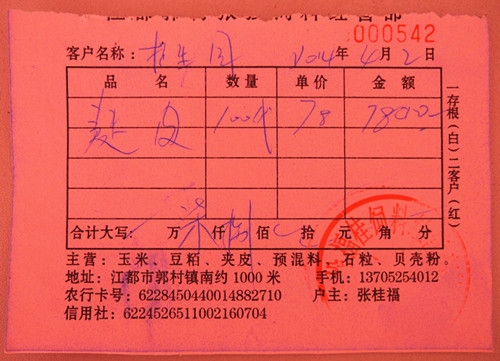 000542
客户名称： 2014年4月2日
品名 数量 单价 金额
麸皮 100代 78 7800
一存根（白）二客户（红）
合计大写： 万 仟 佰 拾 元 角 分
主营：玉米、豆粕、夹皮、预混料、石粒、贝壳粉。
地址：江都市郭村镇南约1000米 手机：13705254012
农行卡号：6228450440014882710 户主：张桂福
信用社：6224526511002160704